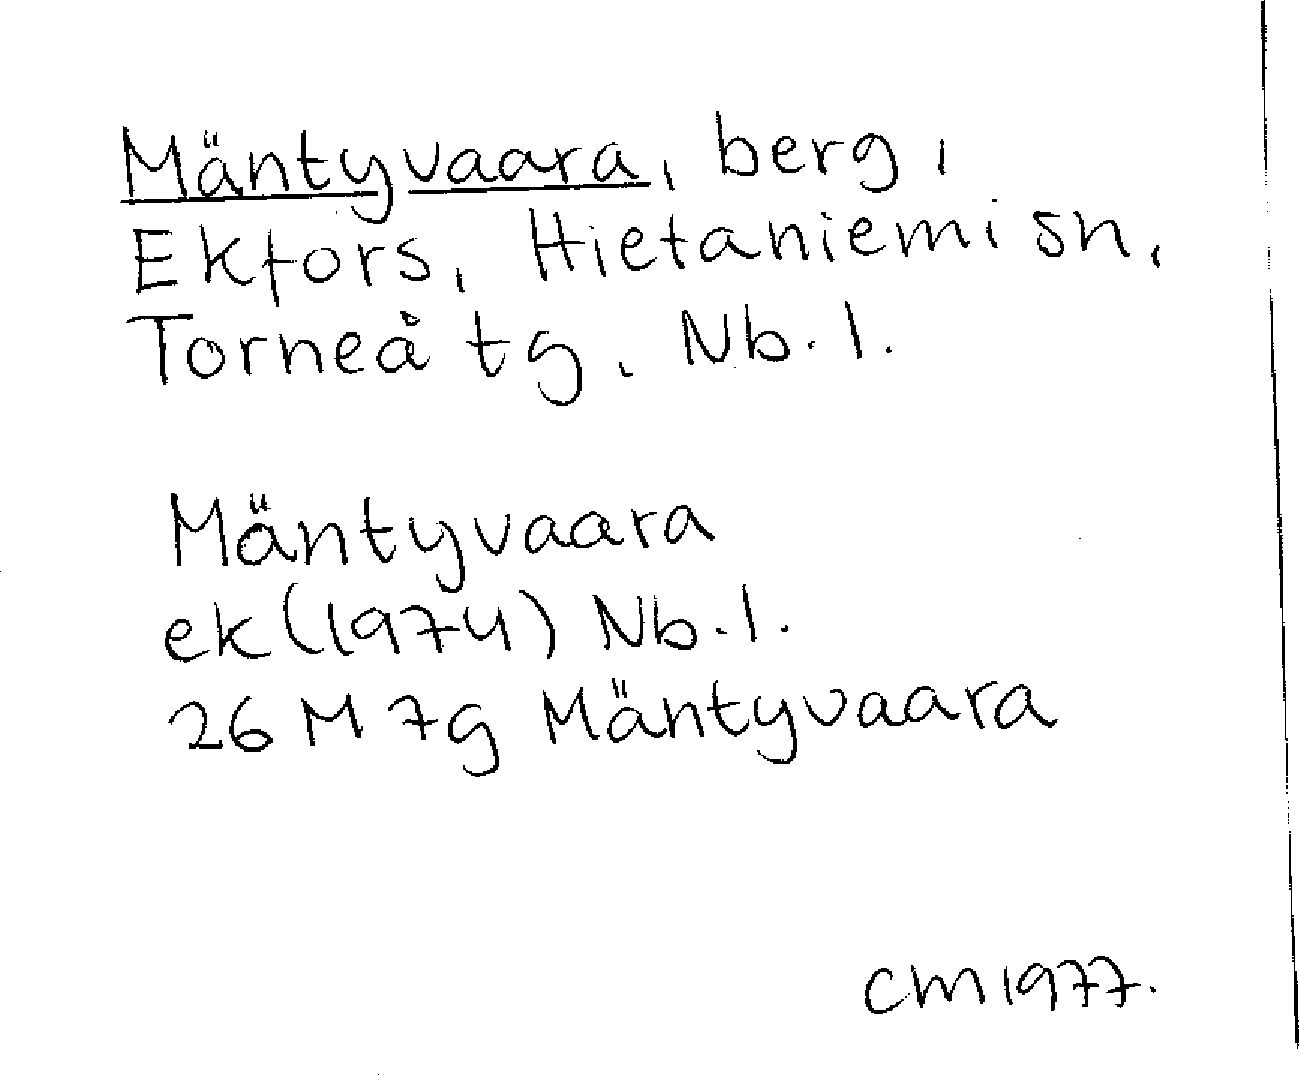 Mäntyvaara, berg,
Ekfors, Hietaniemi sn,
Torneå tg, Nb. l.
Mäntyvaara
ek (1974) Nb. l.
26 M 7g Mäntyvaara
CM 1977.